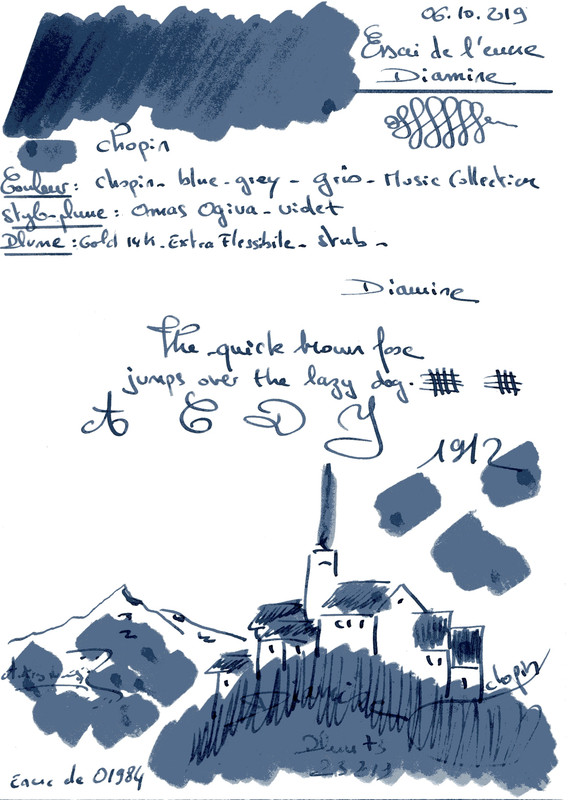 06.10.219
Essai de l'encre
Diamine
Chopin
Couleur: Chopin- blue-grey - gris - Music Collection
Stylo-plume: Omas Ogiva - violet
Plume: Gold 14K - Extra Flessibile - stub -
Diamine
The quick brown fox
jumps over the lazy dog.
A E D Y
1912
Chopin
Encre de 01984